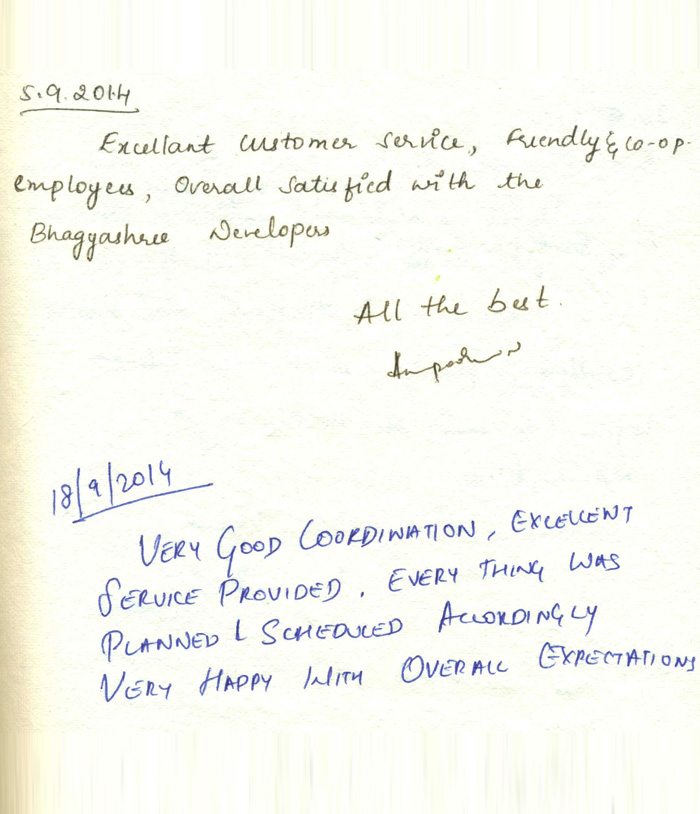 5.9.2014
Excellant customer service, Friendly & co-op.
employees, Overall satisfied with the
Bhagyashree Developers
All the best.
18/9/2014
VERY GOOD COORDINATION, EXCELLENT
SERVICE PROVIDED. EVERY THING WAS
PLANNED & SCHEDULED ACCORDINGLY
VERY HAPPY WITH OVERALL EXPECTATIONS